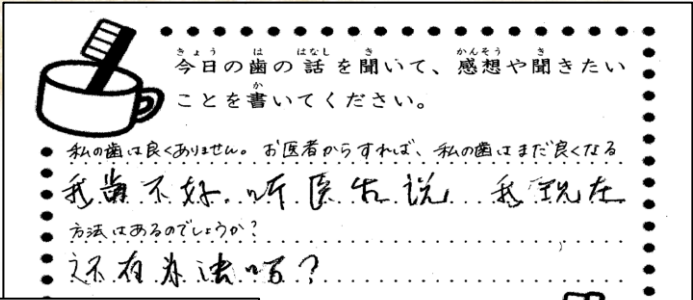 今日の歯の話を聞いて、感想や聞きたい
ことを書いてください。
私の歯は良くありません。お医者からすれば、私の歯はまだ良くなる
我齿不好.听医生说 我现在
方法はあるのでしょうか?
还有办法吗?